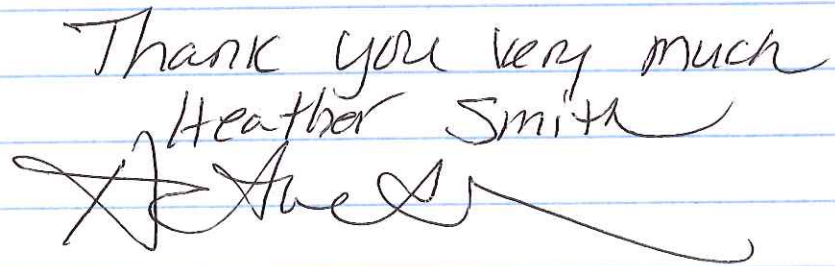 Thank you very much
Heather Smith